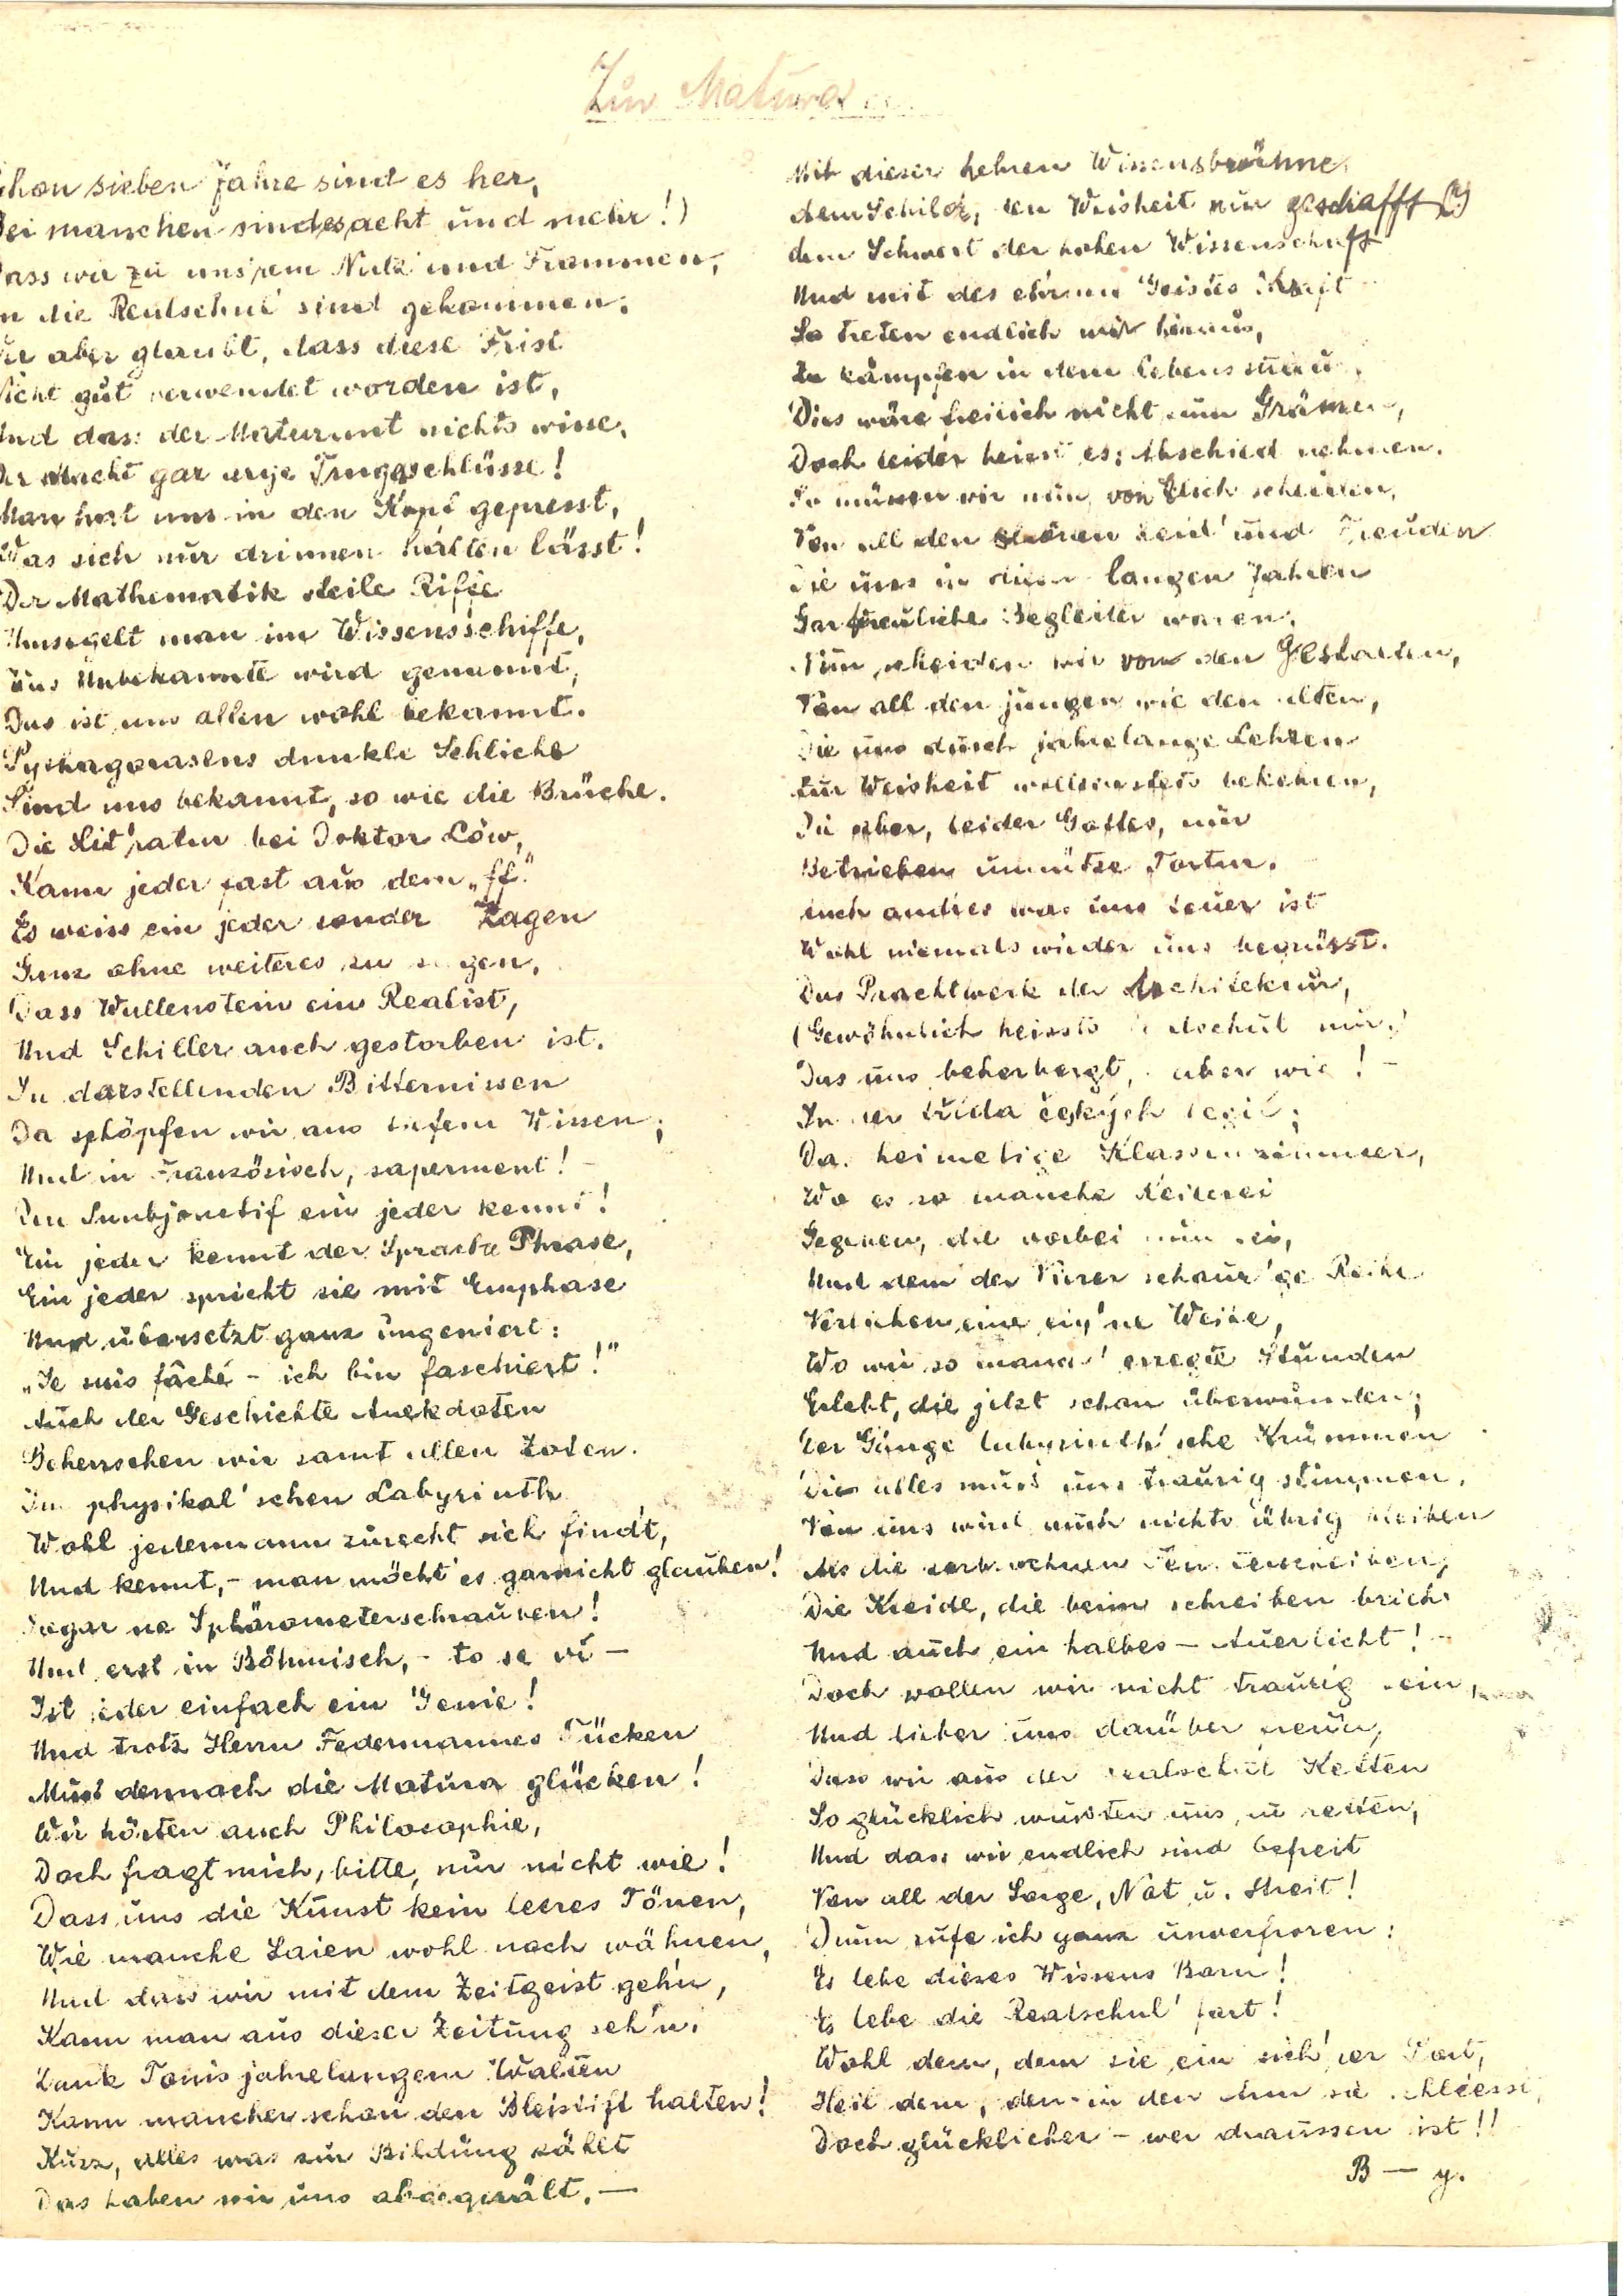 Zur Matura
chon sieben Jahre sind es her,
Bei manchen sind es acht und mehr!)
Dass wir zu uns'rem Nutz und Frommen,
In die Realschul' sind gekommen;
Wer aber glaubt, dass diese Frist
Nicht gut verwendet worden ist,
Und dass der Maturant nichts wisse,
Der macht gar arge Trugschlüsse!
Man hat uns in den Kopf gepresst,
Was sich nur drinnen halten lässt!
Der Mathematik steile Riffe
Umsegelt man im Wissensschiffe,
Uns Unbekannte wird genannt,
Das ist uns allen wohl bekannt.
Pythagorasens dunkle Schliche
Sind uns bekannt, so wie die Brüche.
Die Lit'ratur bei Doktor Löw,
Kann jeder fast aus dem „ff."
Es weiss ein jeder sonder Zagen
Ganz ohne weiteres zu sagen,
Dass Wallenstein ein Realist,
Und Schiller auch gestorben ist.
In darstellenden Bitternissen
Da schöpfen wir aus tiefem Wissen;
Und in Französisch, saperment! –
Den Sunbjonctif ein jeder kennt!
Ein jeder kennt der Sprache Phrase,
Ein jeder spricht sie mit Emphase
Und übersetzt ganz ungeniert:
„Je suis fâché – ich bin faschiert!"
Auch der Geschichte Anekdoten
Beherrschen wir samt allen Zoten.
Im physikal'schen Labyrinth
Wohl jedermann zurecht sich find't,
Und kennt, – man möcht' es garnicht glauben!
Sogar ne Sphärometerschrauben!
Und erst in Böhmisch, – to se ví –
Ist jeder einfach ein Genie!
Und trotz Herrn Federmannes Tücken
Muss dennoch die Matura glücken!
Wir hörten auch Philosophie,
Doch fragt mich, bitte, nur nicht wie!
Dass uns die Kunst kein leeres Tönen,
Wie manche Laien wohl noch wähnen,
Und dass wir mit dem Zeitgeist geh'n,
Kann man aus dieser Zeitung seh'n.
Dank Tonis jahrelangem Walten
Kann mancher schon den Bleistift halten!
Kurz, alles was zur Bildung zählt
Das haben wir uns abgequält. —
Mit dieser hehren Wissensbrünne,
dem Schild, den Weisheit nur geschafft (?)
dem Schwert der hohen Wissenschaft
Und mit des ehrnen Geistes Kraft
So treten endlich wir hinaus,
Zu kämpfen in dem Lebensstrauss.
Dies wäre freilich nicht zum Grämen,
Doch leider heisst es: Abschied nehmen.
So müssen wir nun von Euch scheiden,
Von all den Leid' und Freuden
Die uns in diesen langen Jahren
Gar treuliche Begleiter waren.
Nun scheiden wir von den Gestalten,
Von all den jungen wie den alten,
Die uns durch jahrelange Lehren
Zur Weisheit wollten stets bekehren,
Die aber, leider Gottes, nur
Betrieben unnütze Tortur.
Auch andres was uns teuer ist
Wohl niemals wieder uns begrüsst.
Das Prachtwerk der Architektur,
(Gewöhnlich heissts Realschul nur)
Das uns beherbergt, – aber wie! –
In der třída českých legií;
Das heimelige Klassenzimmer,
Wo es so manche Keilerei
Gegeben, die vorbei nun sei,
Und dem der Vierer schaur'ge Reihe
Verliehen eine eig'ne Weihe,
Wo wir so manch' erregte Stunden
Erlebt, die jetzt schon überwunden;
Der Gänge labyrinth'sche Krümmen
Dies alles muss uns traurig stimmen.
Von uns wird auch nichts übrig bleiben
Als die zerbrochnen Fensterscheiben,
Die Kreide, die beim schreiben bricht
Und auch ein halbes – Auerlicht! –
Doch wollen wir nicht traurig sein,
Und lieber uns darüber freun,
Dass wir aus der Realschul Ketten
So glücklich wussten uns zu retten,
Und dass wir endlich sind befreit
Von all der Sorge, Not u. Streit!
Drum rufe ich ganz unverfroren:
Es lebe dieses Wissens Born!
Es lebe die Realschul' fort!
Wohl dem, dem sie ein sich'rer Port,
Heil dem, den in den Arm sie schliesst,
Doch glücklicher – wer draussen ist!!
B — y.